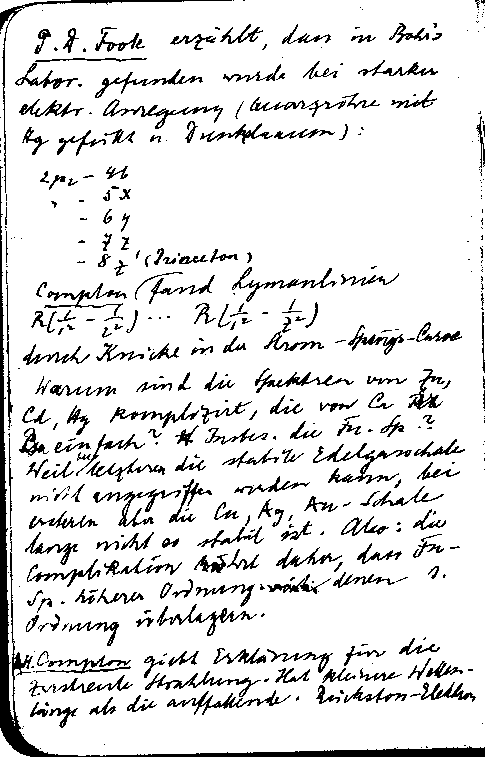 P. D. Foote erzählt, dass in Bohr's
Labor. gefunden wurde bei starker
elektr. Anregung (Quarzröhre mit
Hg gefüllt u. Dunkelraum):
2p₂ – 4b
" – 5X
– 6y
– 7z
– 8z' (Princeton)
Compton fand Lymanlinien
R(1/1² – 1/2²) ... R(1/1² – 1/2²)
durch Knicke in der Strom-Spngs-Curve
Warum sind die Spektren von Zn,
Cd, Hg kompliziert, die von Ca
Ba einfach? Insbes. die Fu. Sp?
Weil bei letzteren die stabile Edelgasschale
nicht angegriffen werden kann, bei
ersteren aber die Cu, Ag, Au-Schale
lange nicht so stabil ist. Also: die
Complikation rührt daher, dass Fu-
Sp. höherer Ordnung denen 1.
Ordnung überlagern.
A.H. Compton giebt Erklärung für die
zerstreute Strahlung. Hat kleinere Wellen-
länge als die auffallende. Rückstoss-Elektron